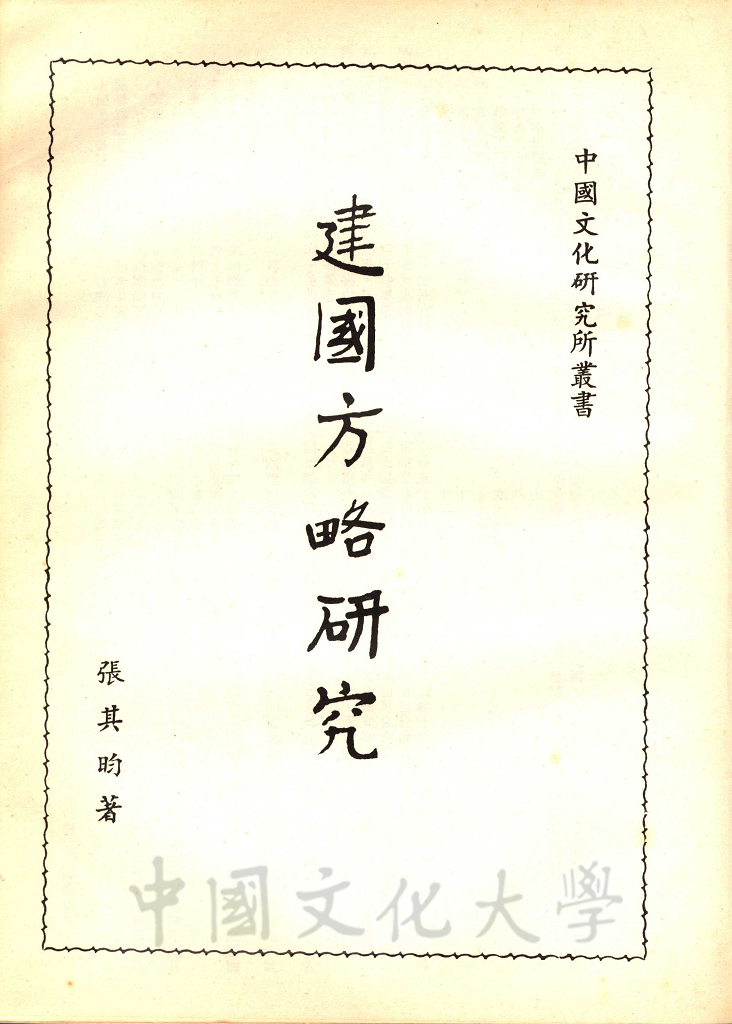 中國文化研究所叢書
建國方略研究
張其昀著
中國文化大學